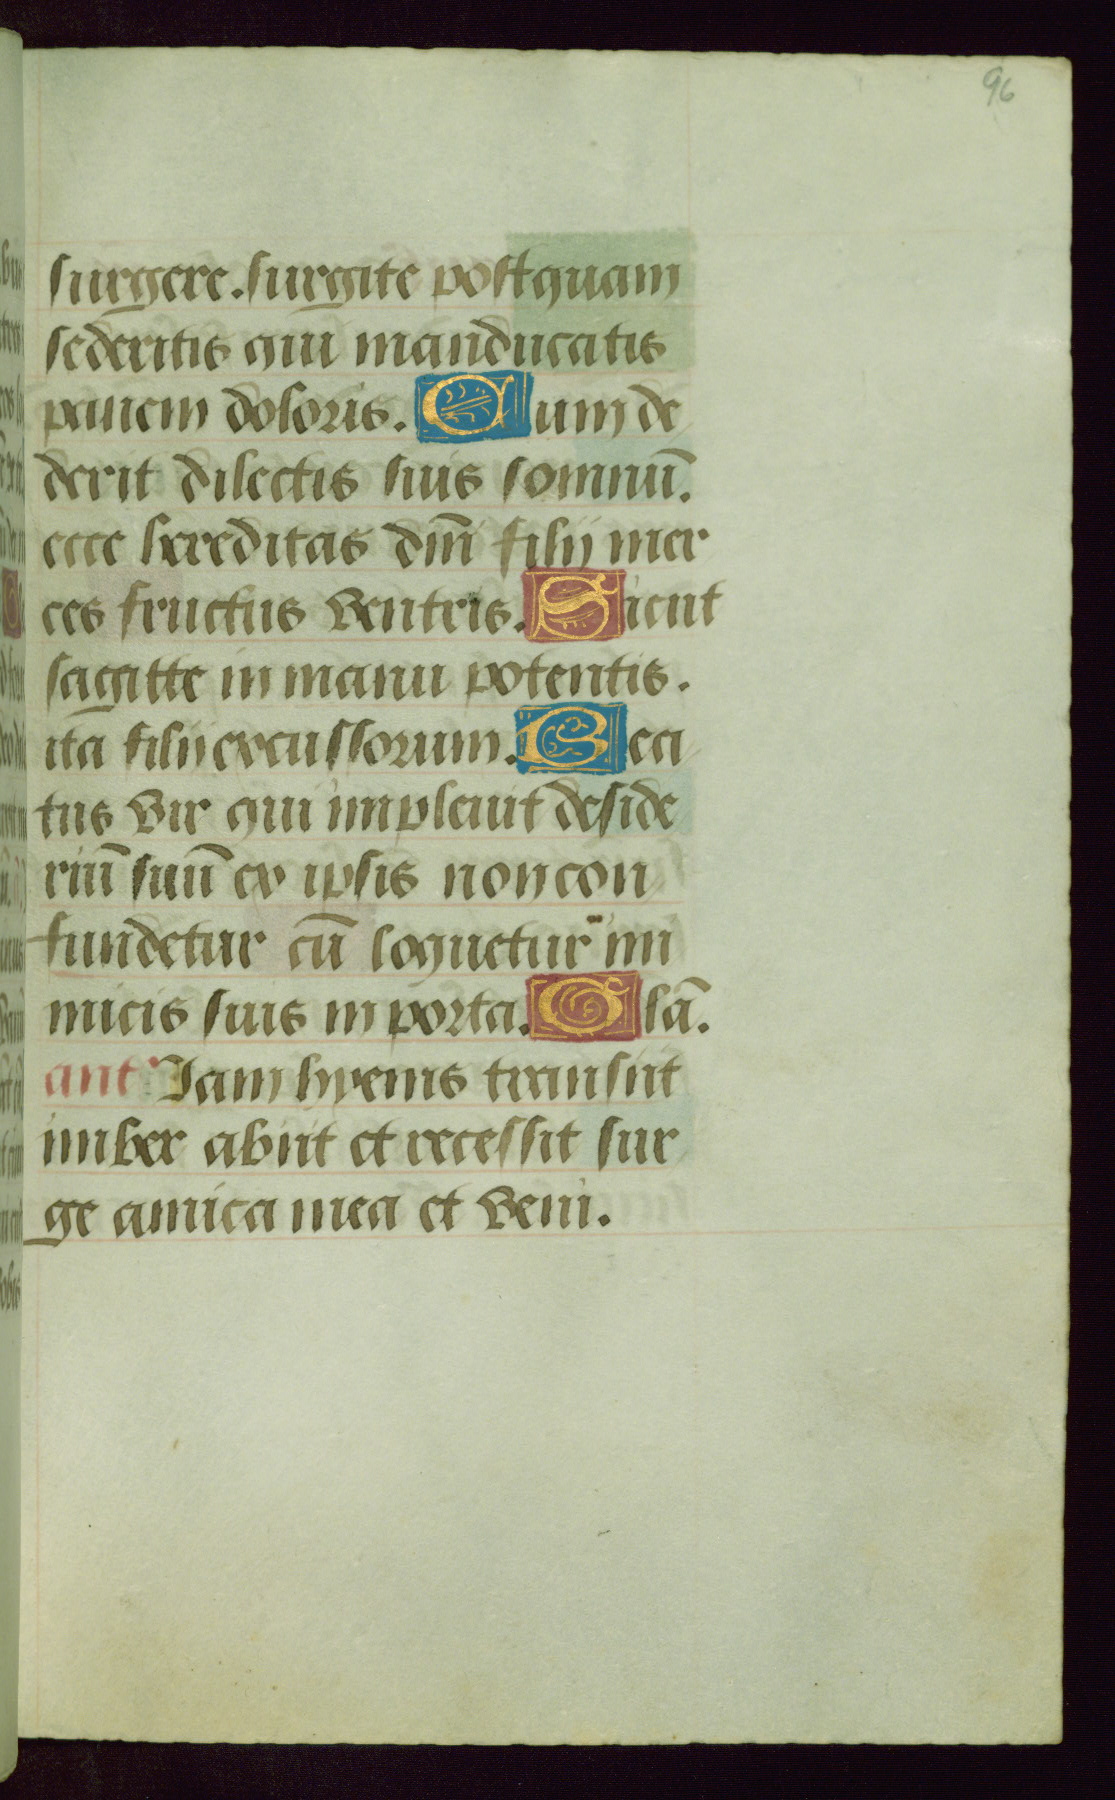 96
surgere. surgite postquam
sederitis qui manducatis
panem doloris. Cum de
derit dilectis suis somnū.
ecce hereditas dm̄ filij mer
ces fructus ventris. Sicut
sagitte in manu potentis.
ita filij excussorum. Bea
tus vir qui impleuit deside
riū suū ex ipsis non con
fundetur cū loquetur ini
micis suis in porta. Glā.
ant Iam hyems transiit
imber abiit et recessit sur
ge amica mea et veni.